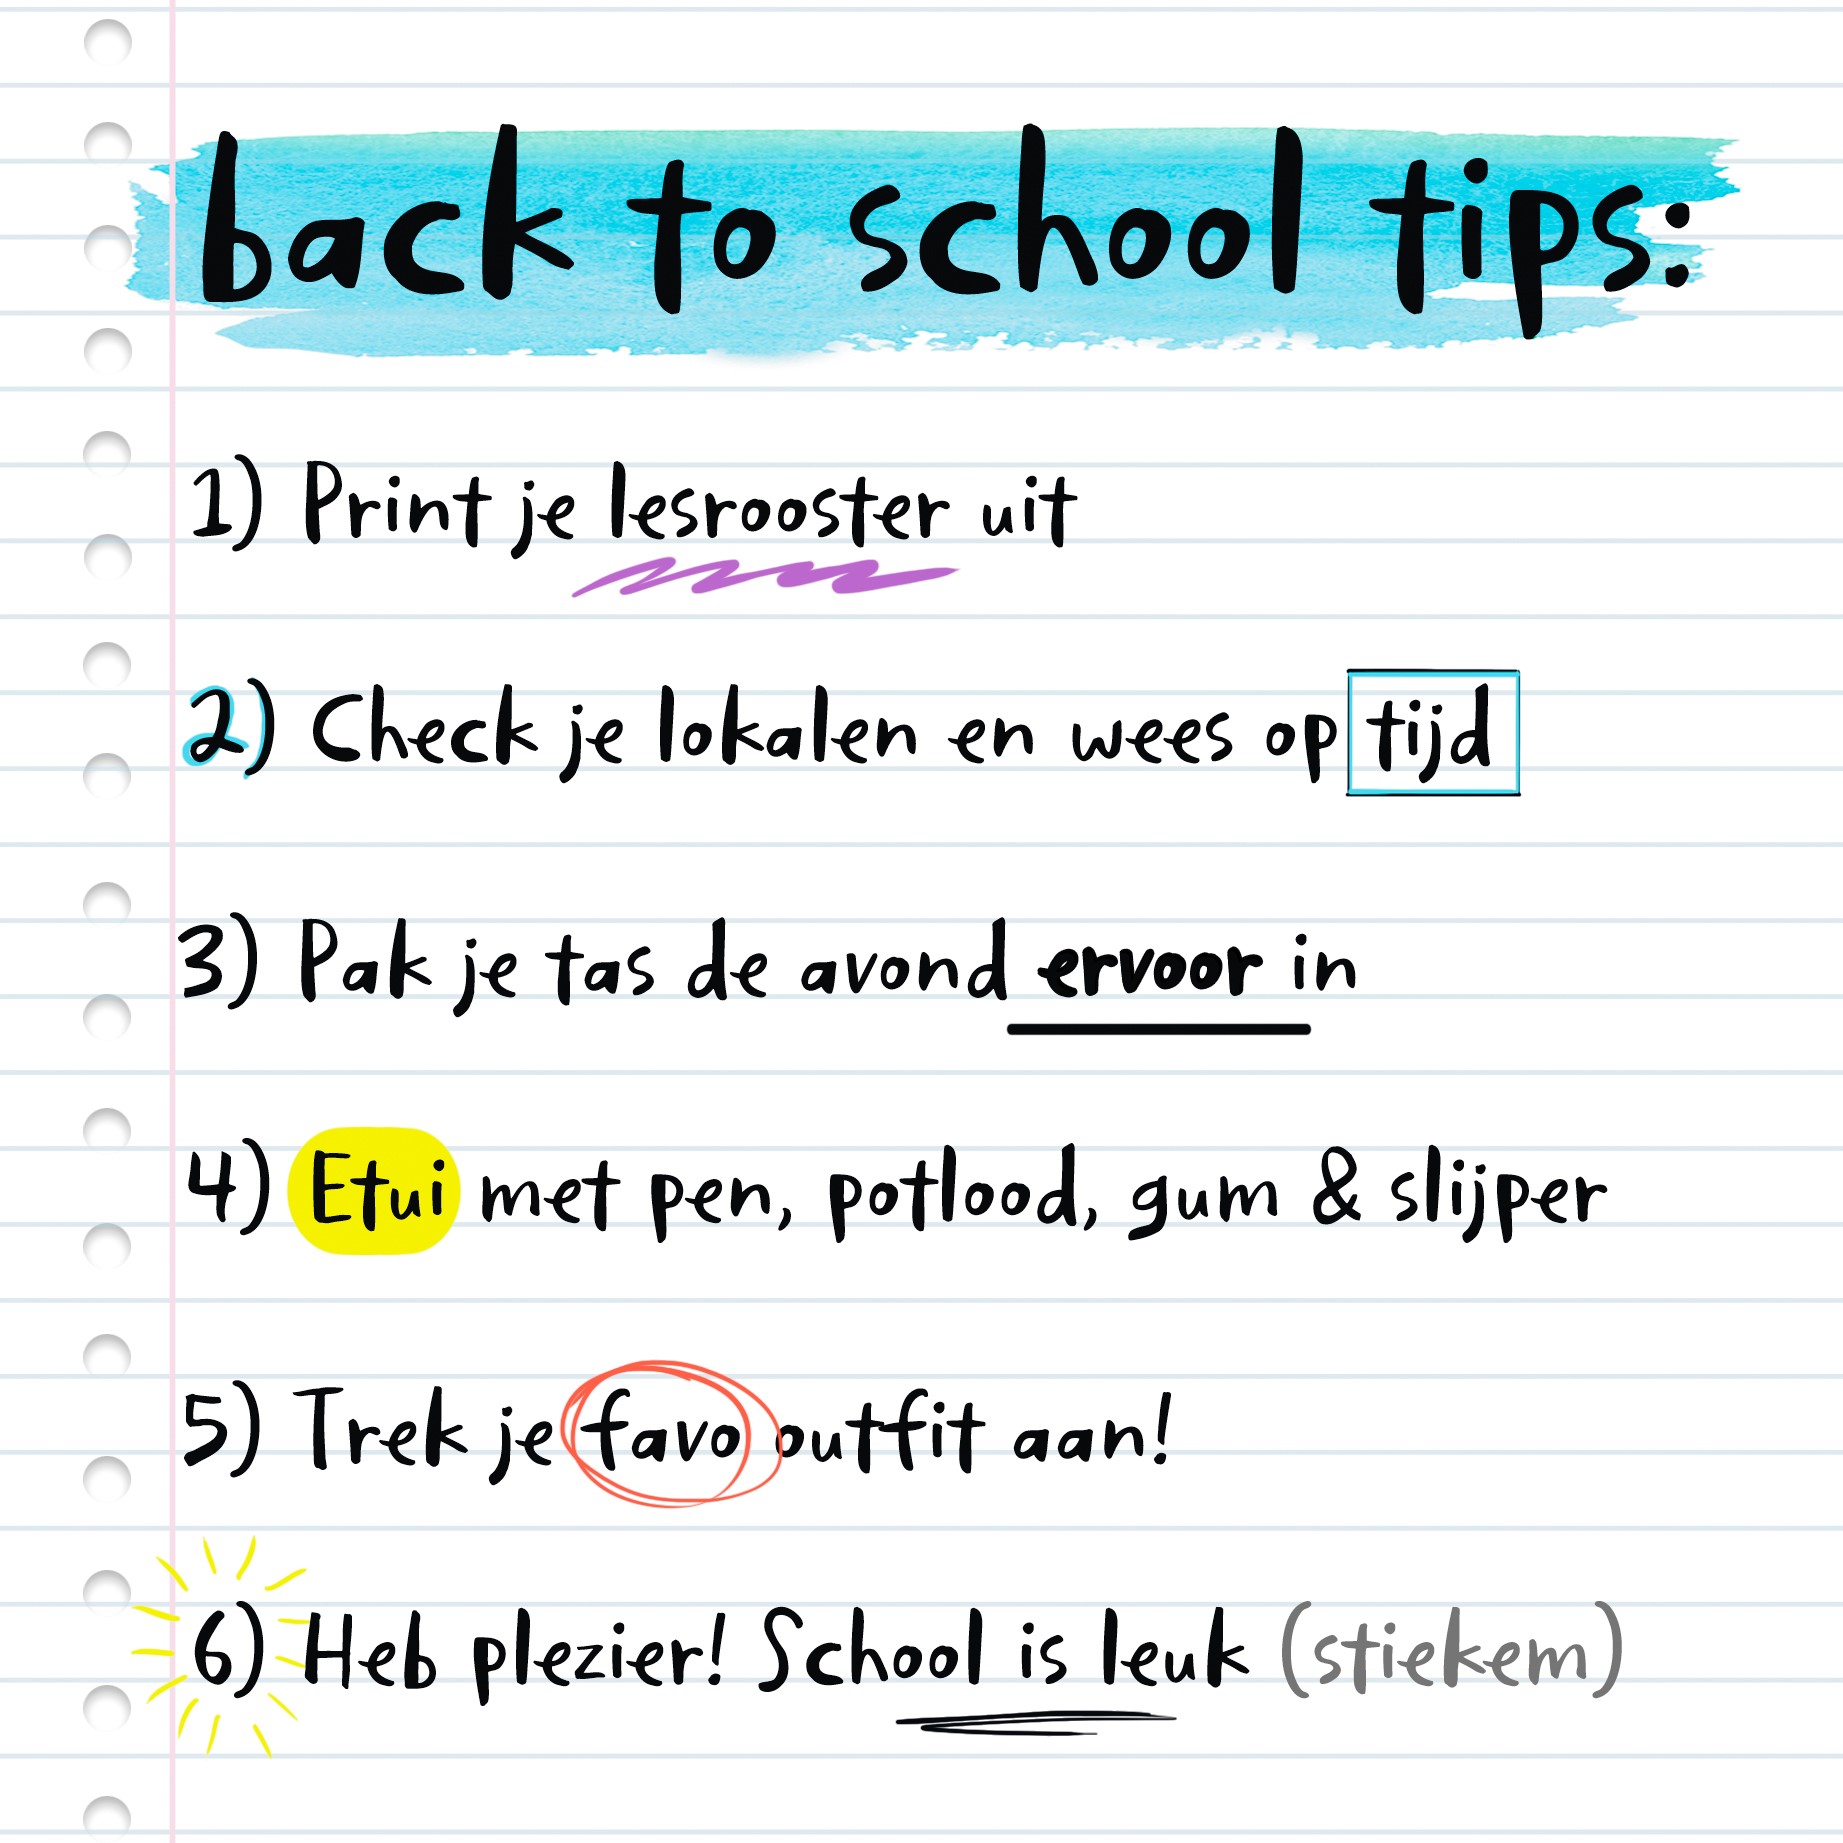 back to school tips:
1) Print je lesrooster uit
2) Check je lokalen en wees op tijd
3) Pak je tas de avond ervoor in
4) Etui met pen, potlood, gum & slijper
5) Trek je favo outfit aan!
6) Heb plezier! School is leuk (stiekem)